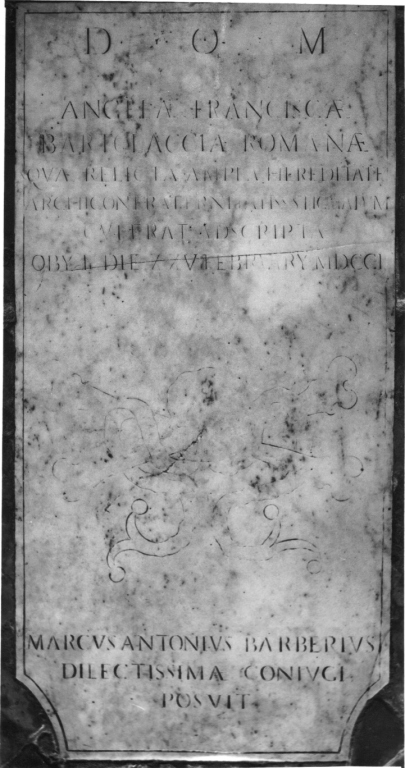 D · O · M
ANGELÆ FRANCISCÆ
BARTOLACCIÆ ROMANÆ
QVÆ RELICTA AMPLA HEREDITATE
ARCHICONFRATERNITATIS STIGMATVM
CVI ERAT ADSCRIPTA
OBYT DIE FEBRVARY MDCCI
MARCVS ANTONIVS BARBERIVS
DILECTISSIMÆ CONIVGI
POSVIT